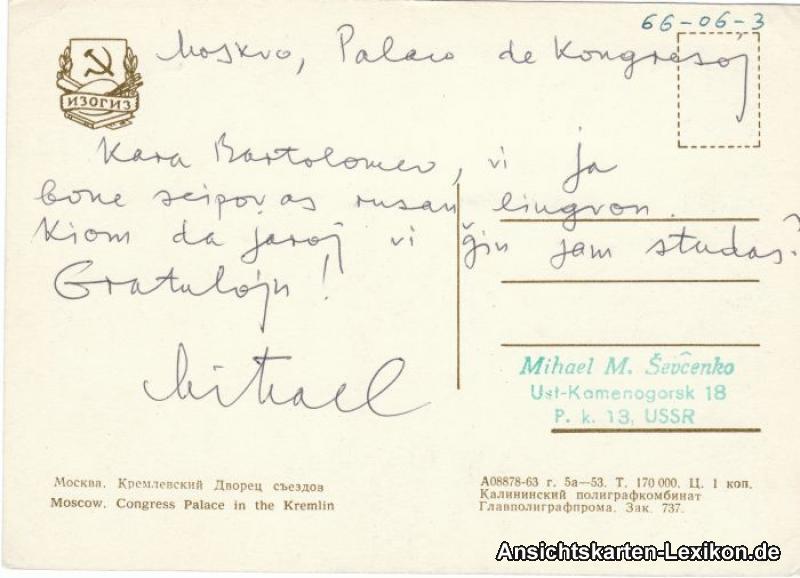 66-06-3
Moskvo, Palaco de Kongresoj
ИЗОГИЗ
Kara Bartolomeo, vi ja
bone scipovas rusan lingvon.
Kiom da jaroj vi ĝin jam studas?
Gratulojn!
Mihael
Mihael M. Ŝevĉenko
Ust-Kamenogorsk 18
P. k. 13, USSR
Москва. Кремлевский Дворец съездов
Moscow. Congress Palace in the Kremlin
А08878-63 г. 5а—53. Т. 170 000. Ц. 1 коп.
Калининский полиграфкомбинат
Главполиграфпрома. Зак. 737.
Ansichtskarten-Lexikon.de